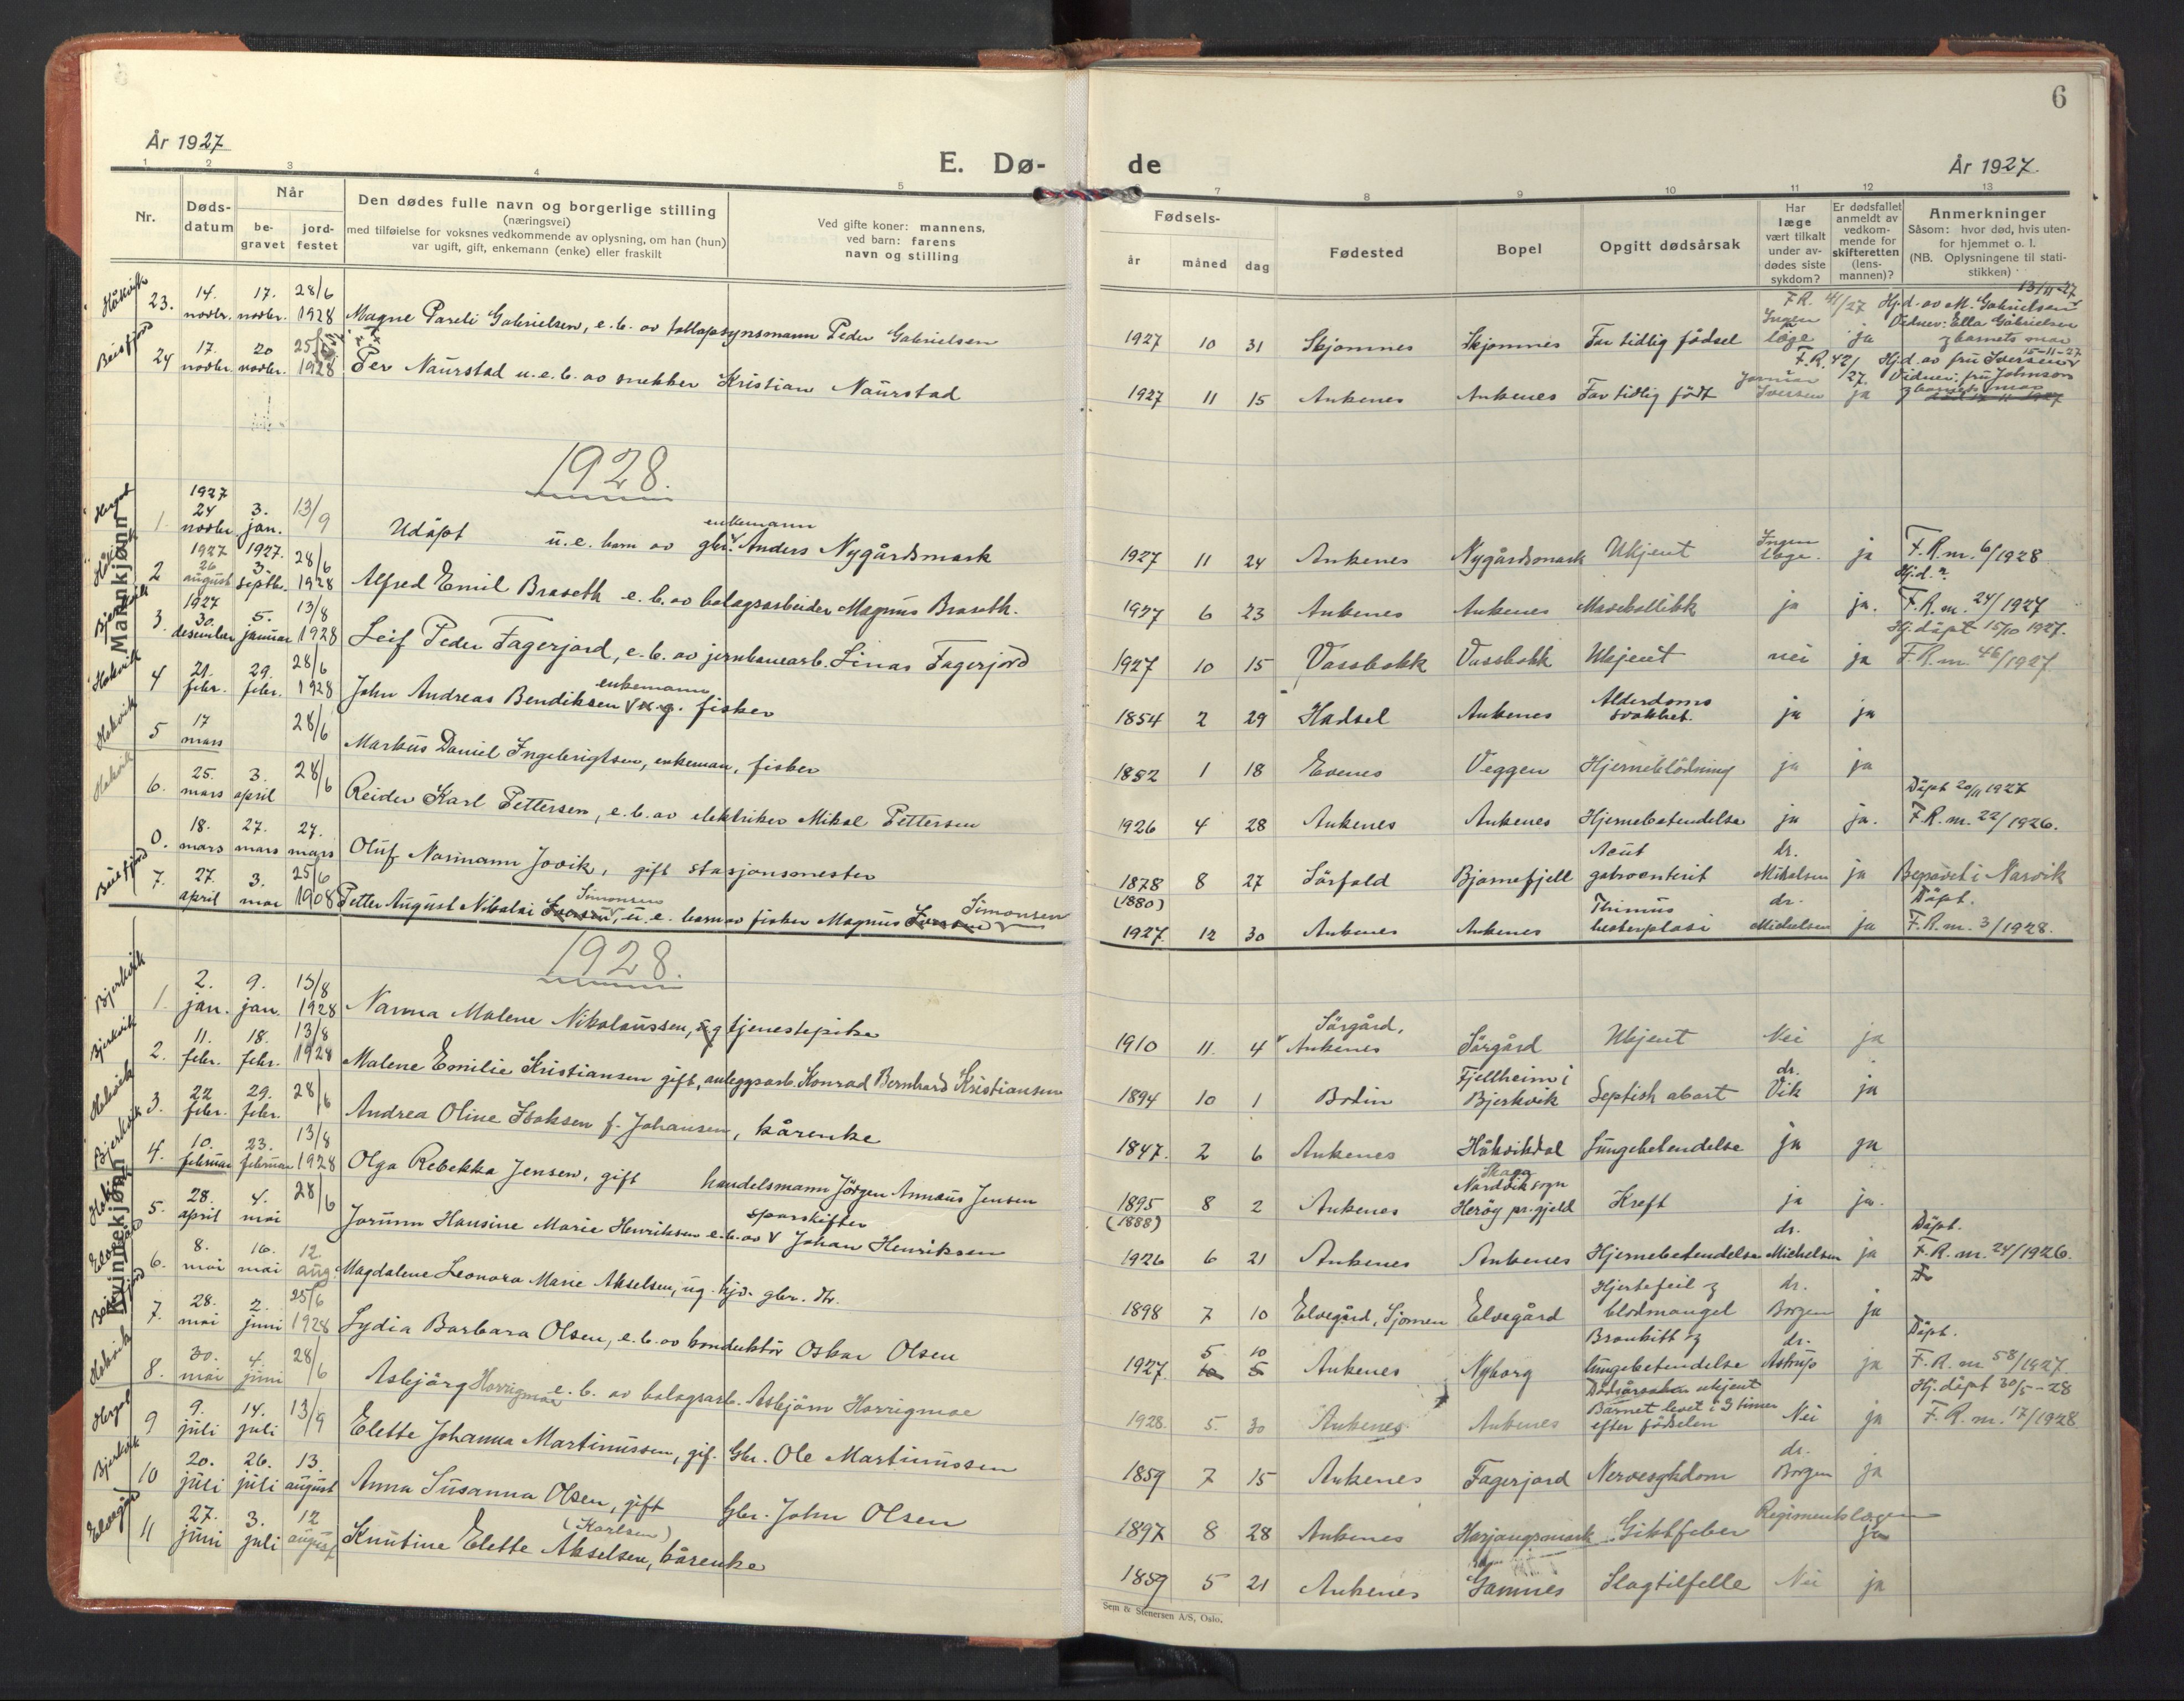 6
År 1927
E. Dø- de
År 1927.
1 2 3 4 5 7 8 9 10 11 12 13
Nr.
Døds-
datum
Når
be-
gravet
jord-
festet
Den dødes fulle navn og borgerlige stilling
(næringsvei)
med tilføielse for voksnes vedkommende av oplysning, om han (hun)
var ugift, gift, enkemann (enke) eller fraskilt
Ved gifte koner: mannens,
ved barn: farens
navn og stilling
Fødsels-
år måned dag
Fødested
Bopel
Opgitt dødsårsak
Har
læge
vært tilkalt
under av-
dødes siste
sykdom?
Er dødsfallet
anmeldt av
vedkom-
mende for
skifteretten
(lens-
mannen)?
Anmerkninger
Såsom: hvor død, hvis uten-
for hjemmet o. l.
(NB. Oplysningene til stati-
stikken)
Håkvik 23. 14. novbr. 17. novbr. 28/6 1928 Magne Pareli Gabrielsen, e. b. av tollopsynsmann Peder Gabrielsen 1927 10 31 Skjomnes Skjomnes For tidlig födsel Ingen læge ja F.R. 41/27 Hj.d. av M. Gabrielsen 13/11-27 Vidner: Ella Gabrielsen og barnets mor
Beisfjord 24 17. novbr. 20 novbr. 25/6 1928 Per Naurstad u. e. b. av snekker Kristian Naurstad 1927 11 15 Ankenes Ankenes For tidlig födt Jormor Iversen ja F.R. 42/27. Hj.d. av fru Iversen 15-11-27 Vidner: fru Johnson og barnets mor
1928.
Mannkjønn
Herget 1. 1927 24 novbr. 3. jan. 13/9 Udöpt u. e. barn av enkemann gbr. Anders Nygårdsmark 1927 11 24 Ankenes Nygårdsmark Ukjent Ingen læge. ja F. R. nr. 6/1928
2 1927 26 august 1927. 3. septbr. 28/6 1928 Alfred Emil Braseth e. b. av bolagsarbeider Magnus Braseth. 1927 6 23 Ankenes Ankenes ja ja. Hj.d. F. R. nr. 24/1927
Bjerkvik 3. 1927 30. desember 5. januar 13/8 1928 Leif Peder Fagerjord, e. b. av jernbanearb. Linas Fagerjord 1927 10 15 Vassbakk Vassbakk Ukjent nei ja Hj. döpt 15/10 1927. F. R. nr. 46/1927
Håkvik 4 21. febr. 29. febr. 28/6 1928 John Andreas Bendiksen enkemann fisker 1854 2 29 Hadsel Ankenes Alderdoms svakhet. ja ja
Håkvik 5 17 mars 28/6 Markus Daniel Ingebrigtsen, enkeman, fisker 1852 1 18 Evenes Veggen Hjerneblödning ja ja
Håkvik 6. 25. mars 3. april 28/6 Reidar Karl Pettersen, e. b. av elektriker Mikal Pettersen 1926 4 28 Ankenes Ankenes Hjernebetendelse ja ja. Döpt 20/11 1927 F. R. nr. 22/1926.
0. 18. mars 27. mars 27. mars Oluf Normann Jovik, gift stasjonsmester 1878 (1880) 8 27 Sörfold Bjørnefjell Acut gastroenterit dr. Mikalsen ja Begravet i Narvik
Beisfjord 7. 27. april 3. mai 25/6 1908 Petter August Nikolai Simonsen, u. e. barn av fisker Magnus Simonsen 1927. 12 30 Ankenes Ankenes Thimus hesterplasi dr. Michelsen ja Döpt. F. R. nr. 3/1928.
1928.
Kvinnekjønn
Bjerkvik 1. 2. jan. 9. jan. 13/8 1928 Nanna Malene Nikolaussen, ug tjenestepike 1910 11. 4 Sörgård, Ankenes Sörgård Ukjent Nei ja
Bjerkvik 2. 11. febr. 18. febr. 13/8 1928 Malene Emilie Kristiansen gift, anleggsarb. Konrad Bernhard Kristiansen 1894 10 1 Bodin Fjellheim i Bjerkvik Septish abort dr. Vik ja
Håkvik 3. 22 febr. 29. febr. 28/6 Andrea Oline Isaksen f. Johansen, kårenke 1847. 2 6 Ankenes Håkvikdal Lungebetendelse ja ja
Bjerkvik 4. 10. februar 23. februar 13/8 1928 Olga Rebekka Jensen, gift handelsmann Jörgen Annæus Jensen 1895 (1888) 8 2 Ankenes Skaga Nordvik sogn Herøy pr.gjeld Kreft ja ja.
5. 28. april 4. mai 28/6 Jorunn Hansine Marie Henriksen e. b. av sporskifter Johan Henriksen 1926 6 21 Ankenes Ankenes Hjernebetendelse dr. Michelsen ja Döpt. F. R. nr. 24/1926.
Elvegård 6. 8. mai 16. mai 12. aug. Magdalene Leonora Marie Akselsen, ug. hjv. gbr. dtr. 1898 7 10 Elvegård, Sjomen Elvegård Hjertefeil og blodmangel dr. Borgen ja
7. 28. mai 2. juni 25/6 1928 Lydia Barbara Olsen, e. b. av konduktör Oskar Olsen 1927 5 10 Ankenes Nyborg Bronkitt og lungebetendelse dr. Astrup ja Döpt. F. R. nr 58/1927.
Håkvik 8. 30. mai 4. juni 28/6 Asbjörg Horrigmoe e. b. av bolagsarb. Asbjörn Horrigmoe 1928. 5. 30 Ankenes. Ankenes Dödsårsaken ukjent Barnet levet i 3 timer efter födselen Nei ja Hj. döpt 30/5-28 F. R. nr. 17/1928
Herget 9 9. juli 14. juli 13/9 Elette Johanna Martinussen, gif. Gbr. Ole Martinussen 1859 7 15 Ankenes Fagerjord Nervesykdom dr. Borgen ja
Bjerkvik 10 20. juli 26. juli 13. august Anna Susanna Olsen, gift Gbr. John Olsen 1897 8 28 Ankenes Harjangsmark Giktfeber Regimentslægen ja
Elvegård 11 27. juni 3. juli 12 august Knutine Elette Akselsen (Karlsen), kårenke 1859 5 21 Ankenes Gamnes Slagtilfelle Nei ja
Sem & Stenersen A/S, Oslo.